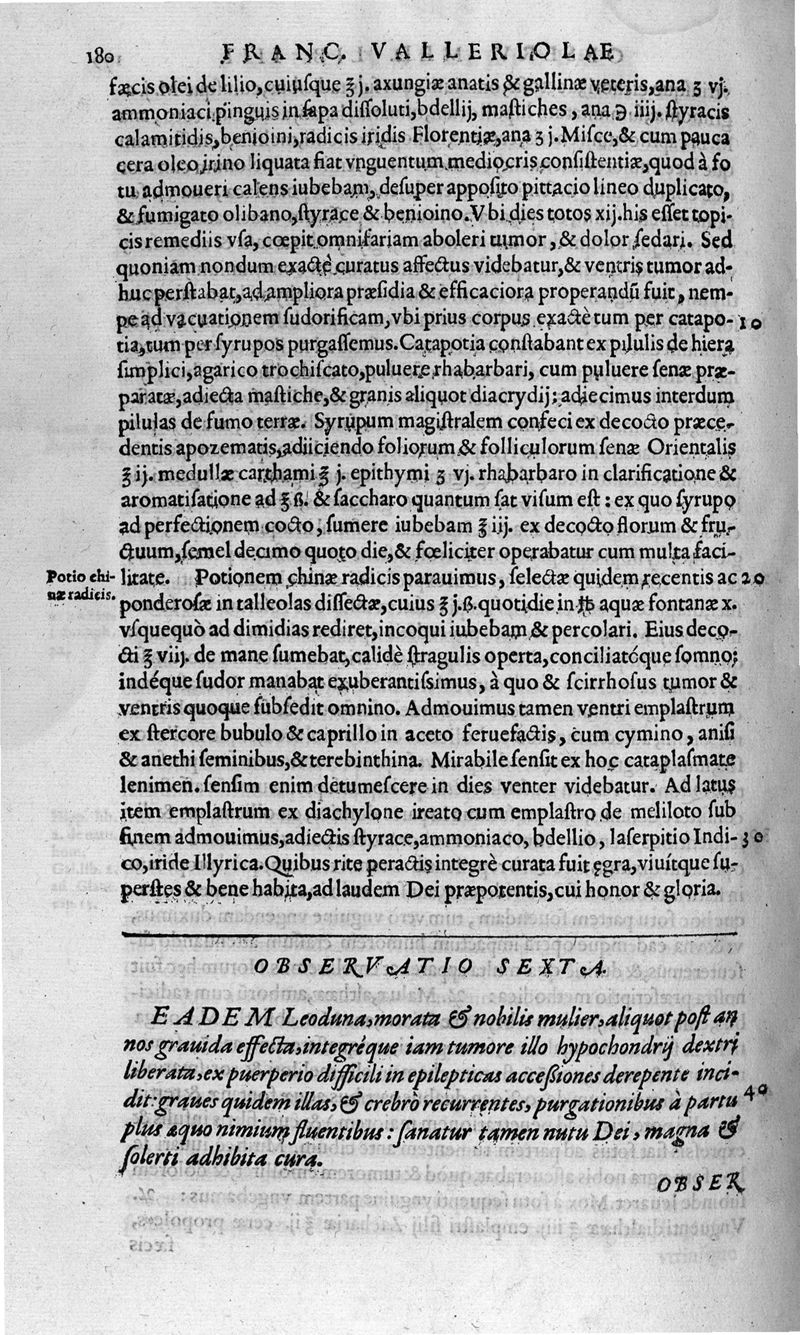 180 FRANC. VALLERIOLAE
fæcis olei de lilio, cuiuſque ℥ j. axungiæ anatis & gallinæ veteris, ana ʒ vj.
ammoniaci pinguis in ſapa diſſoluti, bdellij, maſtiches, ana ℈ iiij. ſtyracis
calamitidis, benioini, radicis iridis Florentiæ, ana ʒ j. Miſce, & cum pauca
cera oleo irino liquata fiat vnguentum mediocris conſiſtentiæ, quod à fo
tu admoueri calens iubebam, deſuper appoſito pittacio lineo duplicato,
& fumigato olibano, ſtyrace & benioino. Vbi dies totos xij. his eſſet topi-
cis remediis vſa, cœpit omnifariam aboleri tumor, & dolor ſedari. Sed
quoniam nondum exactè curatus affectus videbatur, & ventris tumor ad-
huc perſtabat, ad ampliora præſidia & efficaciora properandū fuit, nem-
pe ad vacuationem ſudorificam, vbi prius corpus exactè tum per catapo- 10
tia, tum per ſyrupos purgaſſemus. Catapotia conſtabant ex pilulis de hiera
ſimplici, agarico trochiſcato, puluere rhabarbari, cum puluere ſenæ præ-
paratæ, adiecta maſtiche, & granis aliquot diacrydij: adiecimus interdum
pilulas de fumo terræ. Syrupum magiſtralem confeci ex decocto præce-
dentis apozematis, adiiciendo foliorum & folliculorum ſenæ Orientalis
℥ ij. medullæ carthami ℥ j. epithymi ʒ vj. rhabarbaro in clarificatione &
aromatiſatione ad ℥ ß. & ſaccharo quantum ſat viſum eſt: ex quo ſyrupo
ad perfectionem cocto, ſumere iubebam ℥ iij. ex decocto florum & fru-
ctuum, ſemel decimo quoto die, & fœliciter operabatur cum multa faci-
Potio chi- litate. Potionem chinæ radicis parauimus, ſelectæ quidem recentis ac 20
næ radicis. ponderoſæ in talleolas diſſectæ, cuius ℥ j.ß. quotidie in ℔ aquæ fontanæ x.
vſquequò ad dimidias rediret, incoqui iubebam & percolari. Eius deco-
cti ℥ viij. de mane ſumebat, calidè ſtragulis operta, conciliatóque ſomno:
indéque ſudor manabat exuberantiſsimus, à quo & ſcirrhoſus tumor &
ventris quoque ſubſedit omnino. Admouimus tamen ventri emplaſtrum
ex ſtercore bubulo & caprillo in aceto feruefactis, cum cymino, aniſi
& anethi ſeminibus, & terebinthina. Mirabile ſenſit ex hoc cataplaſmate
lenimen. ſenſim enim detumeſcere in dies venter videbatur. Ad latus
item emplaſtrum ex diachylone ireato cum emplaſtro de meliloto ſub
finem admouimus, adiectis ſtyrace, ammoniaco, bdellio, laſerpitio Indi- 30
co, iride Illyrica. Quibus rite peractis integrè curata fuit ęgra, viuítque ſu-
perſtes & bene habita, ad laudem Dei præpotentis, cui honor & gloria.
OBSERVATIO SEXTA.
EADEM Leoduna, morata & nobilis mulier, aliquot poſt an
nos grauida effecta, integréque iam tumore illo hypochondrij dextri
liberata, ex puerperio difficili in epilepticas acceſsiones derepente inci-
dit: graues quidem illas, & crebrò recurrentes, purgationibus à partu 40
plus æquo nimium fluentibus: ſanatur tamen nutu Dei, magna &
ſolerti adhibita cura.
OBSER